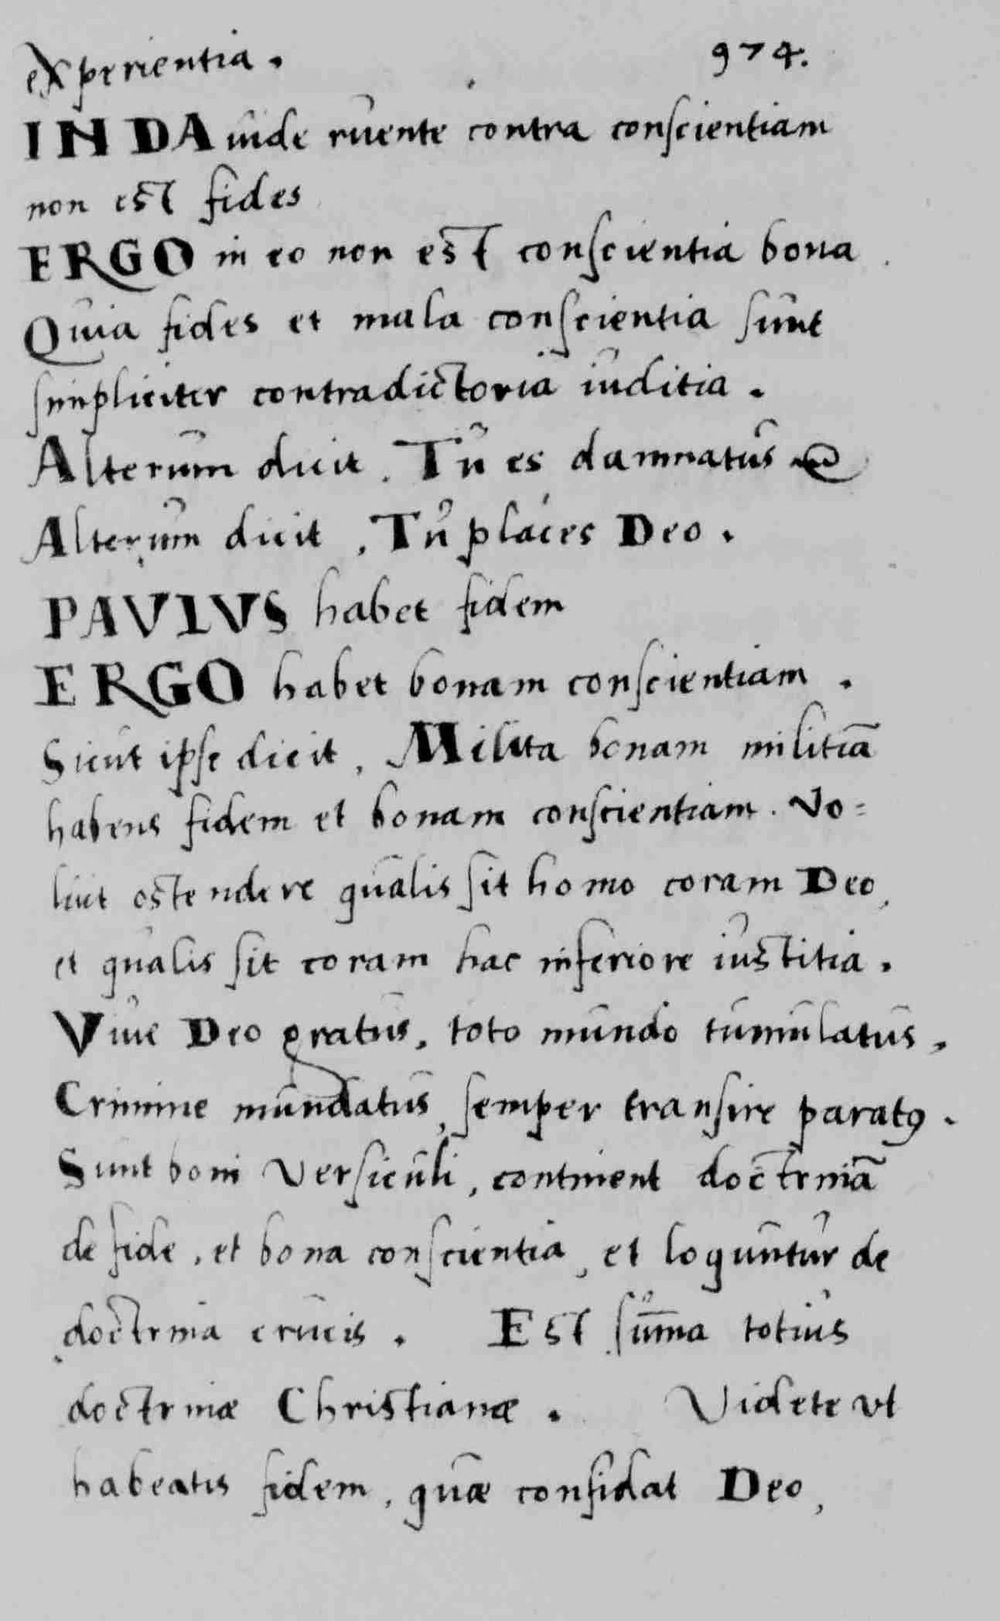 experientia. 974.
IN DAuide ruente contra conscientiam
non est fides
ERGO in eo non est conscientia bona
Quia fides et mala conscientia sunt
simpliciter contradictoria iuditia.
Alterum dicit. Tu es damnatus
Alterum dicit, Tu places Deo.
PAVLVS habet fidem
ERGO habet bonam conscientiam.
Sicut ipse dicit, Milita bonam militiā
habens fidem et bonam conscientiam. Vo=
luit ostendere qualis sit homo coram Deo,
et qualis sit coram hac inferiore iustitia.
Viue Deo gratus, toto mundo tumulatus,
Crimine mundatus, semper transire paratꝰ.
Sunt boni versiculi, continent doctrinā
de fide, et bona conscientia, et loquuntur de
doctrina crucis. Est sum̄a totius
doctrinæ Christianæ. Videte vt
habeatis fidem, quæ confidat Deo,